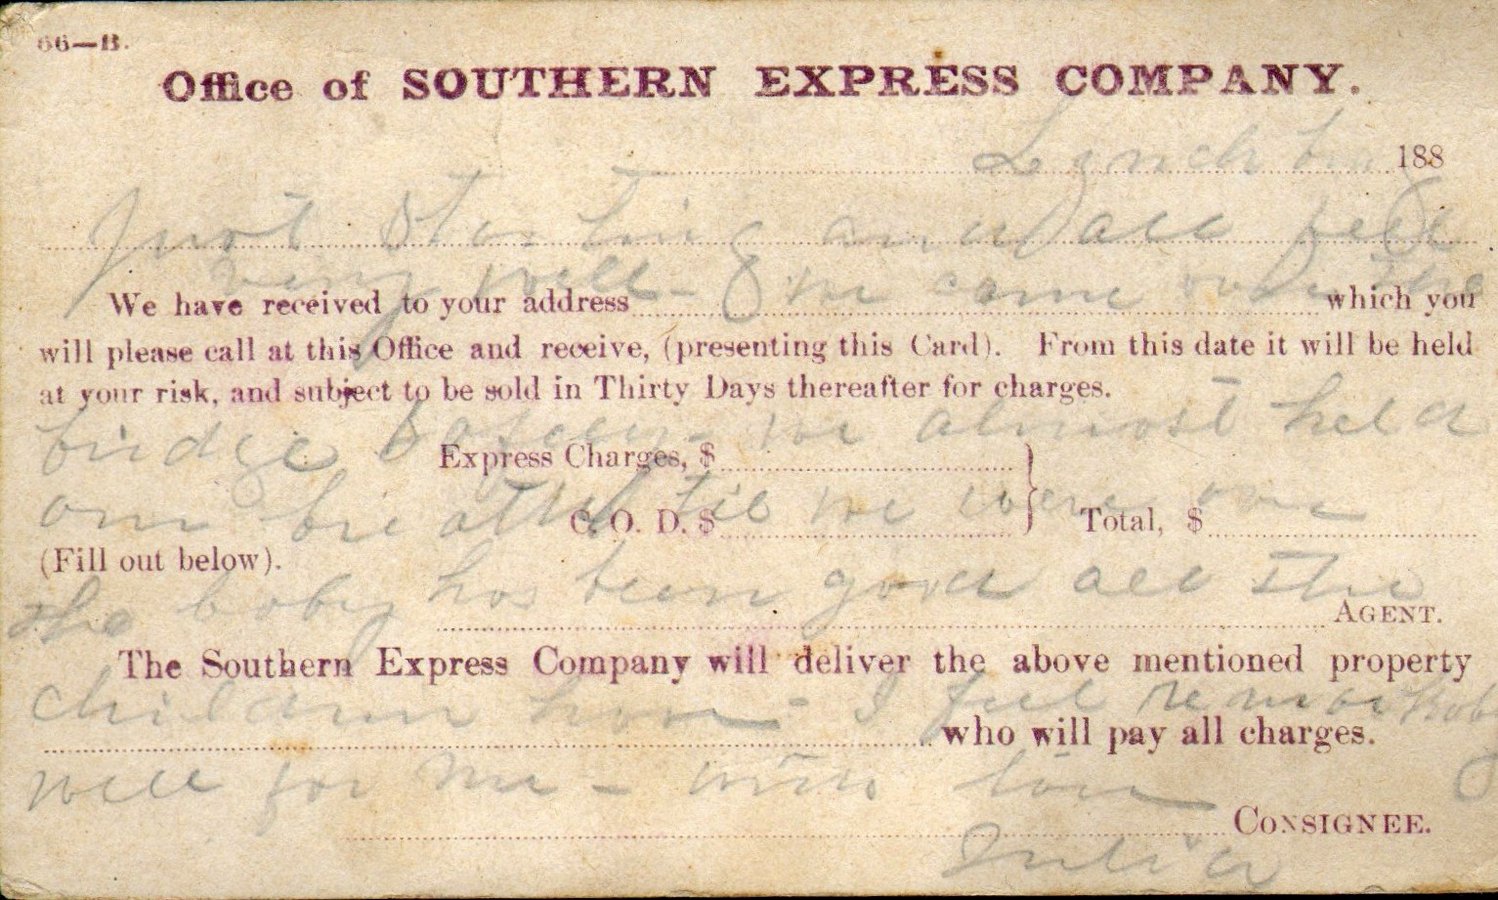 66—B.
Office of SOUTHERN EXPRESS COMPANY.
Lynchburg 188
Just starting and all feel
very well - We came over the
We have received to your address which you
will please call at this Office and receive, (presenting this Card). From this date it will be held
at your risk, and subject to be sold in Thirty Days thereafter for charges.
bridge safely - we almost held
Express Charges, $
our breath til we were over
C. O. D. $ Total, $
(Fill out below).
the baby has been good all the
AGENT.
The Southern Express Company will deliver the above mentioned property
children have - I feel remarkably
who will pay all charges.
well for me - with love
CONSIGNEE.
Julia